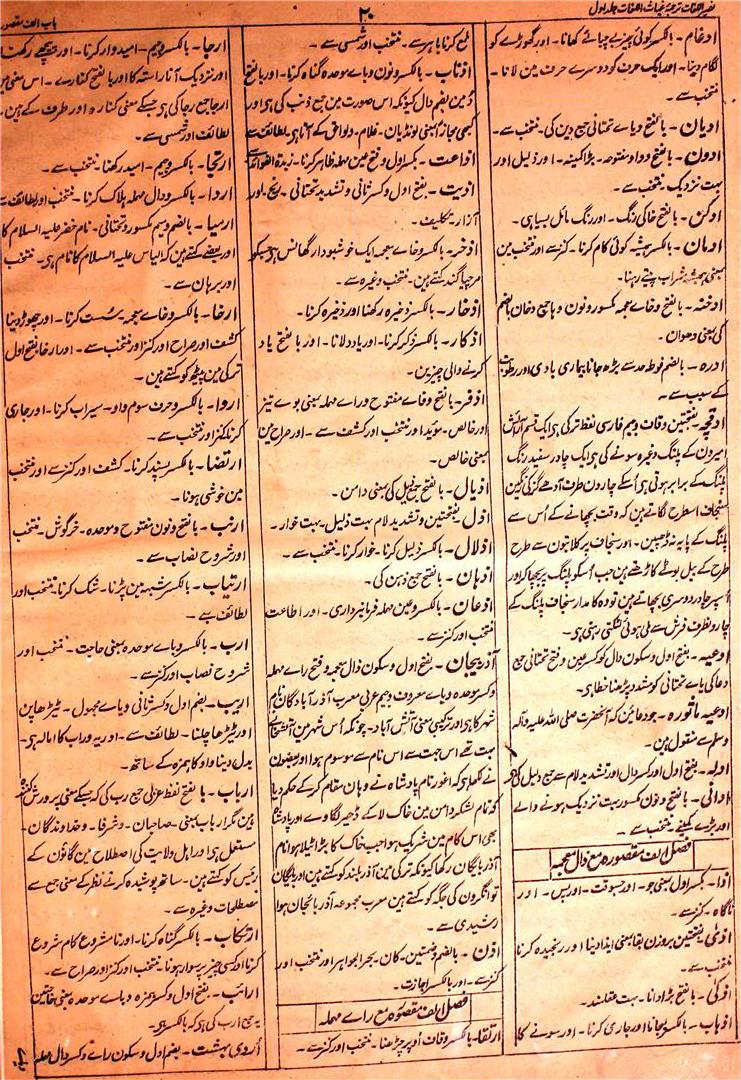 نصیر اللغات ترجمۂ غیاث اللغات جلد اول
۲۰
باب الف مقصور
ادغام - بالکسر کوئی چیز بے چبائے کھانا - اور گھوڑے کو
لگام دینا - اور ایک حرف کو دوسرے حرف مین لانا -
منتخب سے -
ادیان - بالفتح و یاے تحتانی جمع دین کی - منتخب سے -
ادون - بالفتح و واو مفتوحہ - بڑا کمینہ - اور ذلیل اور
بہت نزدیک منتخب سے -
ادکن - بالفتح خاکی رنگ - اور رنگ مائل بسیاہی -
ادمان - بالکسر ہمیشہ کوئی کام کرنا - کنز سے اور منتخب مین
بمعنی ہمیشہ شراب پیتے رہنا -
ادخنہ - بالفتح و خاے معجمہ مکسور و نون و ہا جمع دخان بالضم
کی بمعنی دھوان -
ادرہ - بالضم فوطہ حد سے بڑھ جانا بیماری بادی اور رطوبت
کے سبب سے -
ادقچہ - بفتحتین و قاف و جیم فارسی لفظ ترکی ہی ایک قسم آرایش
امیرون کے پلنگ وغیرہ سونے کی ہی ایک چادر سفید رنگ
پلنگ کے برابر ہوتی ہی اُسکے چارون طرف آدھے گز کی رنگین
سنجاف اسطرح لگاتے ہین کہ وقت بچھانے کے اُس سے
پلنگ کے پایہ نہ ڈھپین - اور سنجاف پر کلابتون سے طرح
طرح کے بیل بوٹے کاڑھتے ہین جب اُسکو پلنگ پر بچھا کر اور
اُسپر چادر دوسری بچھاتے ہین تو وہ کامدار سنجاف پلنگ کے
چارونطرف فرش سے ملی ہوئی لٹکتی رہتی ہی -
ادعیہ - بفتح اول و سکون دال و کسر عین و فتح تحتانی جمع
دعا کی یاے تحتانی کو مشدد پڑھنا خطا ہی -
ادعیہ ماثورہ - جو دعائین کہ آنحضرت صلی اللہ علیہ و آلہ
وسلم سے منقول ہین -
ادلہ - بفتح اول و کسر دال اور تشدید لام سے جمع دلیل کی
ادانی - بالفتح و نون مکسور بہت نزدیک ہونے والے
اور بڑے کمینے منتخب سے -
فصل الف مقصورہ مع ذال معجمہ
اذا - بکسر اول بمعنی جو - اور سبوقت - اور پس - اور
ناگاہ - کنز سے -
اذیٰ - بفتحتین بروزن بقا بمعنی ایذا دینا اور رنجیدہ کرنا
منتخب سے -
اذکیٰ - بالفتح بڑا دانا - بہت عقلمند -
اذہاب - بالکسر لیجانا اور جاری کرنا - اور سونے کا
طمع کرنا باہر سے - منتخب اور شمسی سے -
اذناب - بالکسر و نون و باے موحدہ گناہ کرنا - اور بالفتح
دُمین بضم دال کیونکہ اس صورت مین جمع ذنب کی ہی اور
کبھی مجازاً بمعنی لونڈیان - غلام - و لواحق کے آتا ہی لطائف سے
اذاعت - بکسر اول و فتح عین مہملہ ظاہر کرنا - زبدۃ الفوائد سے
اذیت - بفتح اول و کسر ثانی و تشدید تحتانی - رنج - اور
آزار و تکلیف -
اذخر - بالکسر و خاے معجمہ ایک خوشبودار گھانس ہی جسکو
مرچیا گند کہتے ہین - منتخب وغیرہ سے -
اذخار - بالکسر ذخیرہ رکھنا اور ذخیرہ کرنا -
اذکار - بالکسر ذکر کرنا - اور یاد دلانا - اور بالفتح یاد
کرنے والی چیزین -
اذفر - بالفتح و فاے مفتوح و راے مہملہ بمعنی بوے تیز
اور خالص - موید اور منتخب اور کشف سے - اور صراح مین
بمعنی خالص -
اذیال - بالفتح جمع ذیل کی بمعنی دامن -
اذل - بفتحتین و تشدید لام بہت ذلیل - بہت خوار -
اذلال - بالکسر ذلیل کرنا - خوار کرنا - منتخب سے -
اذہان - بالفتح جمع ذہن کی -
اذعان - بالکسر و عین مہملہ فرمانبرداری - اور اطاعت
منتخب اور کنز سے -
آذربیجان - بفتح اول و سکون ذال معجمہ و فتح راے مہملہ
و کسر موحدہ و یاے معروف و جیم عربی معرب آذر آبادگان نام
شہر کا ہی اور ترکیبی معنی آتش آباد - چونکہ اُس شہر مین آتشخانے
بہت تھے اس جہت سے اس نام سے موسوم ہوا اور بعضون
نے لکھا ہی کہ اغور نام بادشاہ نے وہان مقام کر کے حکم دیا
کہ تمام لشکر دامن مین خاک لا کے ڈھیر لگاوے اور بادشاہ
بھی اس کام مین شریک ہوا جب خاک کا بڑا ٹیلا ہوا نام
آذربایگان رکھا کیونکہ ترکی مین آذر بلند کو کہتے ہین اور بایگان
توانگرون کی جگہ کو کہتے ہین معرب مجموعہ آذربائجان ہوا
رشیدی سے -
اذن - بالضم و بضمتین - کان - بحر الجواہر اور منتخب اور
کنز سے - اور بالکسر اجازت -
فصل الف مقصورہ مع راے مہملہ
ارتقا - بالکسر و قاف اوپر چڑھنا - منتخب اور کنز سے -
ارجا - بالکسر و جیم - امیدوار کرنا - اور پیچھے رکھنا
اور نزدیک آنا راستہ کا اور بالفتح کنارے - اس معنی مین
ارجا جمع رجا کی ہی جسکے معنی کنارہ اور طرف کے ہین -
لطائف اور شمسی سے -
ارتجا - بالکسر و جیم - امید رکھنا - منتخب سے -
اردا - بالکسر و دال مہملہ ہلاک کرنا - منتخب اور لطائف سے
ارمیا - بالضم و میم مکسور و تحتانی - نام خضر علیہ السلام کا
اور بعضے کہتے ہین کہ الیاس علیہ السلام کا نام ہی - منتخب
اور برہان سے -
ارخا - بالکسر و خاے معجمہ سست کرنا - اور چھوڑ دینا
کشف اور صراح اور کنز اور منتخب سے - اور ارخا بفتح اول
ترکی مین پیٹھ کو کہتے ہین -
اروا - بالکسر و حرف سوم واو - سیراب کرنا - اور جاری
کرنا کنز اور منتخب سے -
ارتضا - بالکسر پسند کرنا - کشف اور کنز سے اور منتخب
مین خوشی ہونا -
ارنب - بالفتح و نون مفتوح و موحدہ - خرگوش - منتخب
اور شروح نصاب سے -
ارتیاب - بالکسر شبہہ مین پڑنا - شک کرنا - منتخب اور
لطائف سے -
ارب - بالکسر و باے موحدہ بمعنی حاجت - منتخب اور
شروح نصاب اور کنز سے -
اریب - بضم اول و کسر ثانی و یاے مجہول - ٹیڑھا پن
اور ٹیڑھا چلنا - لطائف سے - اور یہ وراب کا امالہ ہی -
بدل دینا واو کا ہمزہ کے ساتھ -
ارباب - بالفتح لفظ عربی جمع رب کی کہ جسکے معنی پرورش کنندہ
ہین مگر ارباب بمعنی - صاحبان - و شرفا - و خداوندگان -
مستعمل ہی اور اہل ولایت کی اصطلاح مین گانون کے
رئیس کو کہتے ہین - ساتھ پوشیدہ کرنے نظر کے معنی جمع سے
مصطلحات وغیرہ سے -
ارتکاب - بالکسر گناہ کرنا - اور نامشروع کام شروع
کرنا اور کسی چیز پر سوار ہونا - منتخب اور کنز اور صراح سے -
ارائب - بفتح اول و کسر ہمزہ و باے موحدہ بمعنی حاجتین
یہ جمع ارب کی ہی کہ بالکسر ہی -
اُردی بہشت - بضم اول و سکون راے و کسر دال مہملہ